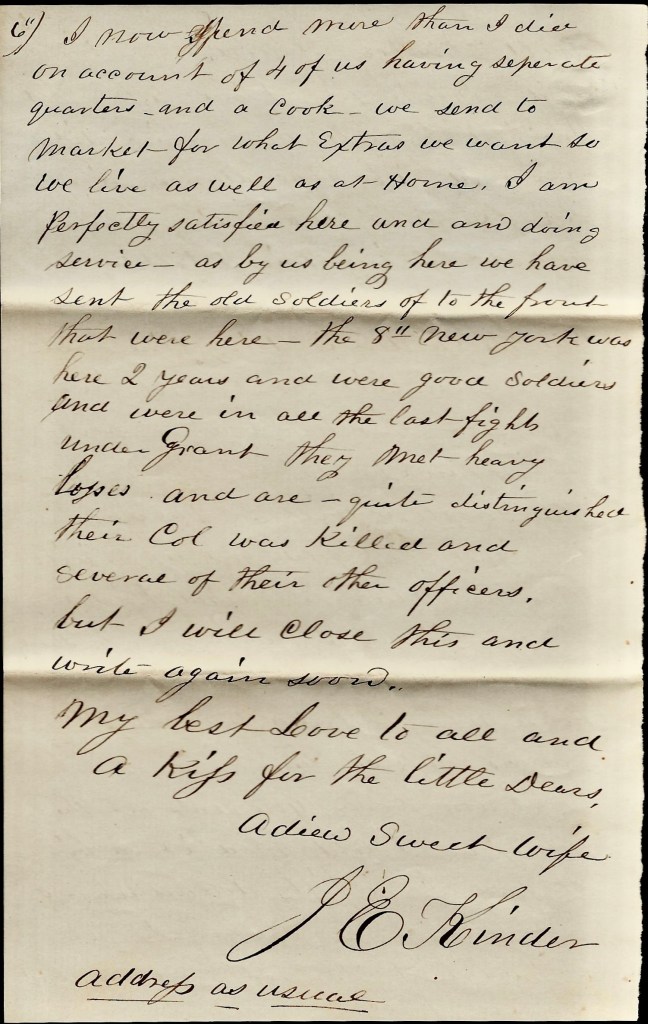 6")
I now spend more than I did
on account of 4 of us having seperate
quarters - and a Cook - we send to
market for what Extras we want so
we live as well as at Home. I am
Perfectly satisfied here and am doing
service - as by us being here we have
sent the old Soldiers of to the front
that were here - the 8" New York was
here 2 years and were good Soldiers
and were in all the last fights
under Grant they met heavy
losses and are - quite distinguished
their Col was Killed and
several of their other officers.
but I will Close this and
write again soon..
My best Love to all and
a Kiss for the little Dears,
Adieu Sweet wife
J E Kinder
address as usual